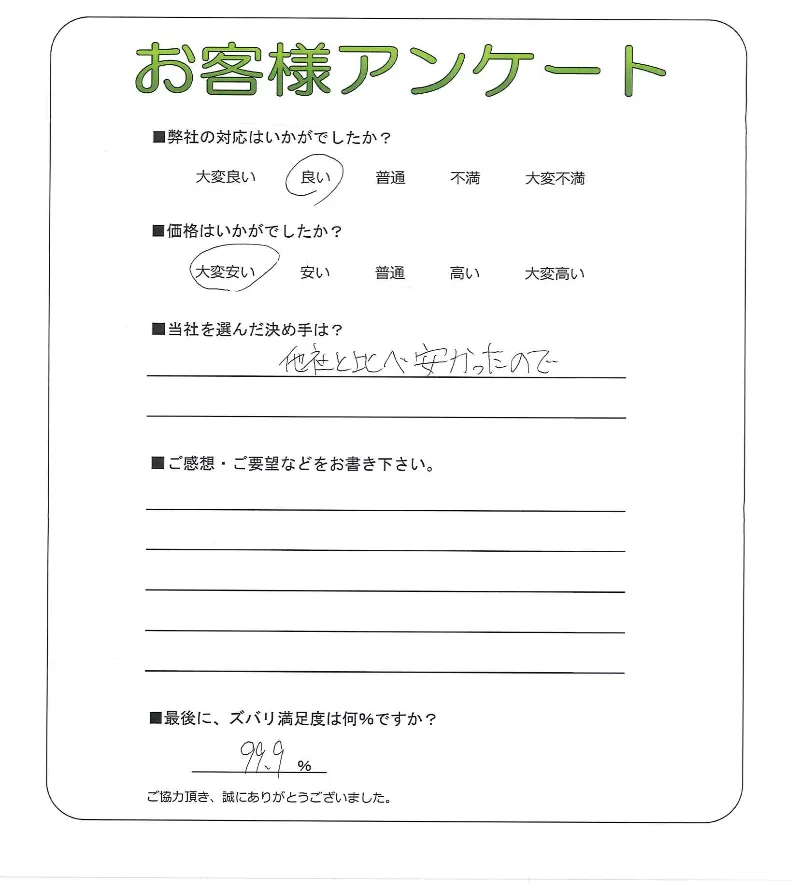 お客様アンケート
■弊社の対応はいかがでしたか?
大変良い 良い 普通 不満 大変不満
■価格はいかがでしたか?
大変安い 安い 普通 高い 大変高い
■当社を選んだ決め手は?
他社と比べ安かったので
■ご感想・ご要望などをお書き下さい。
■最後に、ズバリ満足度は何%ですか?
99.9 %
ご協力頂き、誠にありがとうございました。